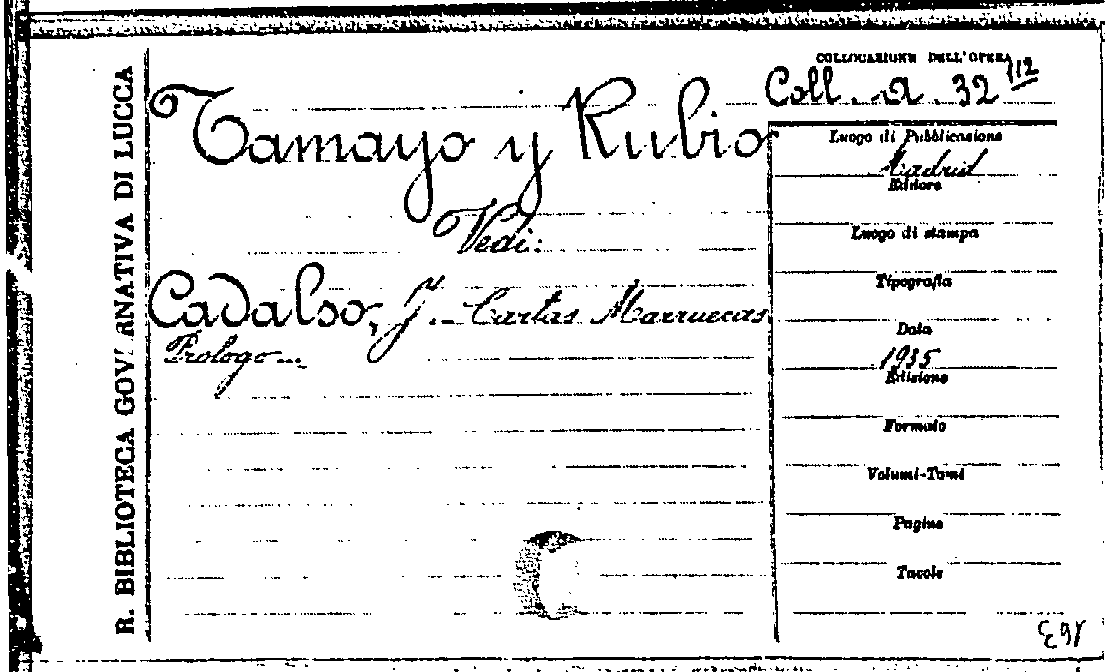 R. BIBLIOTECA GOVERNATIVA DI LUCCA
COLLOCAZIONE DELL'OPERA
Coll. a. 32 112
Tamayo y Rubio
Vedi:
Cadalso, J. - Cartas Marruecas.
Prologo...
Luogo di Pubblicazione
Madrid
Editore
Luogo di stampa
Tipografia
Data
1935
Edizione
Formato
Volumi-Tomi
Pagine
Tavole